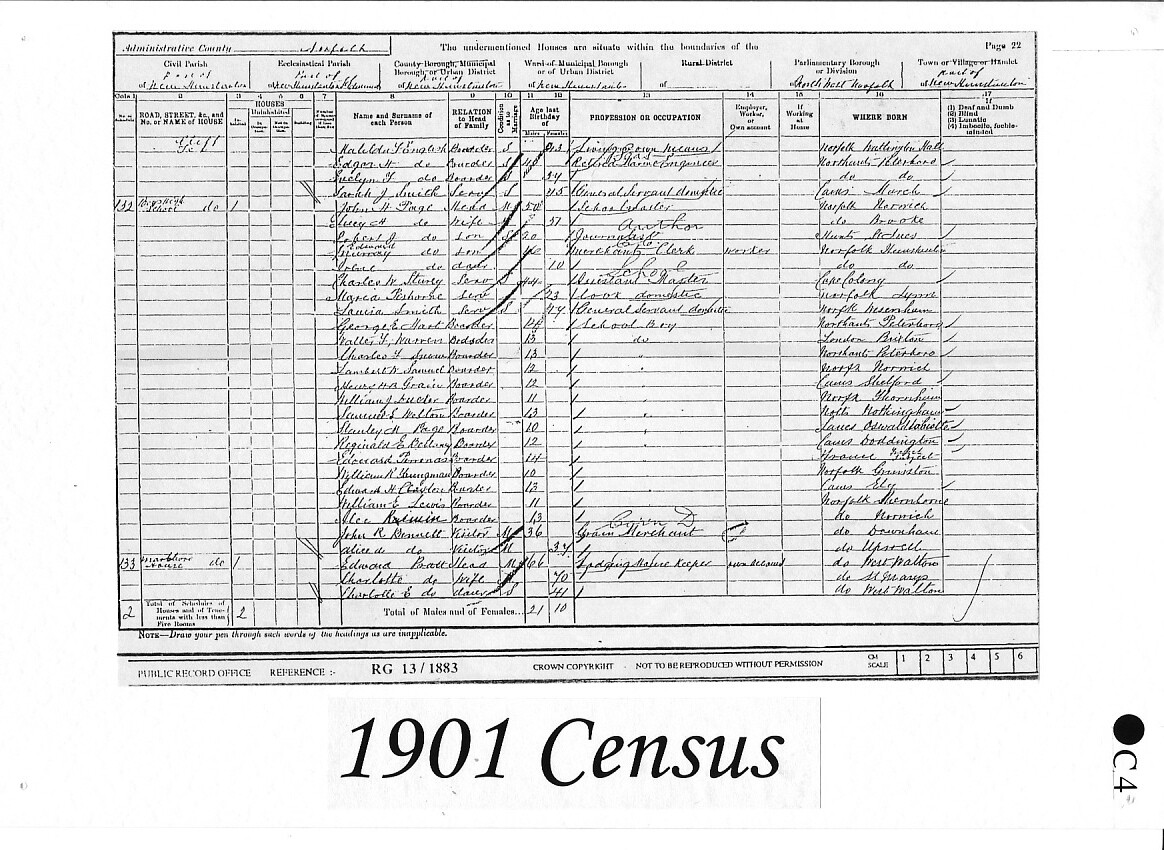 Administrative County Norfolk The undermentioned Houses are situate within the boundaries of the Page 22
Civil Parish Ecclesiastical Parish County Borough, Municipal Borough, or Urban District Ward of Municipal Borough or of Urban District Rural District Parliamentary Borough or Division Town or Village or Hamlet
Part of Part of Part of Part of
of New Hunstanton of New Hunstanton St Edmund of New Hunstanton of New Hunstanton of North West Norfolk of New Hunstanton
Cols. 1 2 3 4 5 6 7 8 9 10 11 12 13 14 15 16 17
ROAD, STREET, &c., and No. or NAME of HOUSE HOUSES Name and Surname of each Person RELATION to Head of Family Condition as to Marriage Age last Birthday of PROFESSION OR OCCUPATION Employer, Worker, or Own account If Working at Home WHERE BORN If (1) Deaf and Dumb (2) Blind (3) Lunatic (4) Imbecile, feeble-minded
Males Females
Matilda F English Boarder S 43 Living own means Norfolk Wallington Hall
Edgar H do Boarder S 40 Retired Marine Engineer Northants Peterboro
Evelyn F do Boarder S 34 do do
Sarah J Smith Serv S 45 General Servant domestic Cams March
132 School do 1 John H Page Head M 50 Schoolmaster Norfolk Norwich
Lucy A do Wife 51 Author do Brooke
Robert J do Son S 20 Journalist Hunts St Ives
Murray do Son 16 Merchants Clerk worker Norfolk Hunstanton
do daur 10 do do
Charles W Sturey Serv S 44 Assistant School Master Cape Colony
Serv 23 Cook domestic Norfolk Lynn
Louisa Smith Serv S 47 General Servant domestic Norfolk
George E Hart Boarder 14 School Boy Northants Peterboro
Walter F Warren Boarder 13 do London Brixton
Charles F Boarder 13 " Northants Peterboro
Lambert W Samuel Boarder 12 " Norfk Norwich
Henry Grain Boarder 12 " Cams Shelford
William J Boarder 11 " Norfk Thornham
Samuel E Walton Boarder 13 " Notts Nottingham
Stanley H Page Boarder 10 " Lancs Oswaldtwistle
Reginald E Bettany Boarder 12 " Cams Doddington
Edouard Boarder 14 France
William R Youngman Boarder 10 Norfolk Grimston
Edward H Clayton Boarder 13 Cams Ely
William E Lewis Boarder 11 Norfolk Shernborne
Alec Boarder 13 do Norwich
John R Bennett Visitor M 36 Grain Merchant do Downham
Alice do Visitor M 34 do Upwell
133 House do 1 Edward Pratt Head M 66 Lodging House Keeper own account do West Walton
Charlotte do Wife 70 do St Marys
Charlotte E do daur S 41 do West Walton
2 Total of Schedules of Houses and of Tenements with less than Five Rooms 2 Total of Males and of Females... 21 10
NOTE—Draw your pen through such words of the headings as are inapplicable.
PUBLIC RECORD OFFICE REFERENCE :- RG 13/1883 CROWN COPYRIGHT - NOT TO BE REPRODUCED WITHOUT PERMISSION CM SCALE 1 2 3 4 5 6
1901 Census
C4